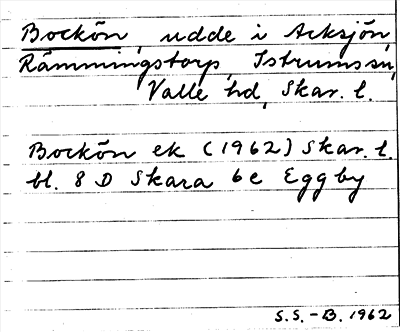 Bockön, udde i Acksjön,
Rämmingstorp, Istrums sn,
Valle hd, Skar. l.
Bockön ek (1962) Skar. l.
bl. 8 D Skara 6e Eggby
S.S.-B. 1962